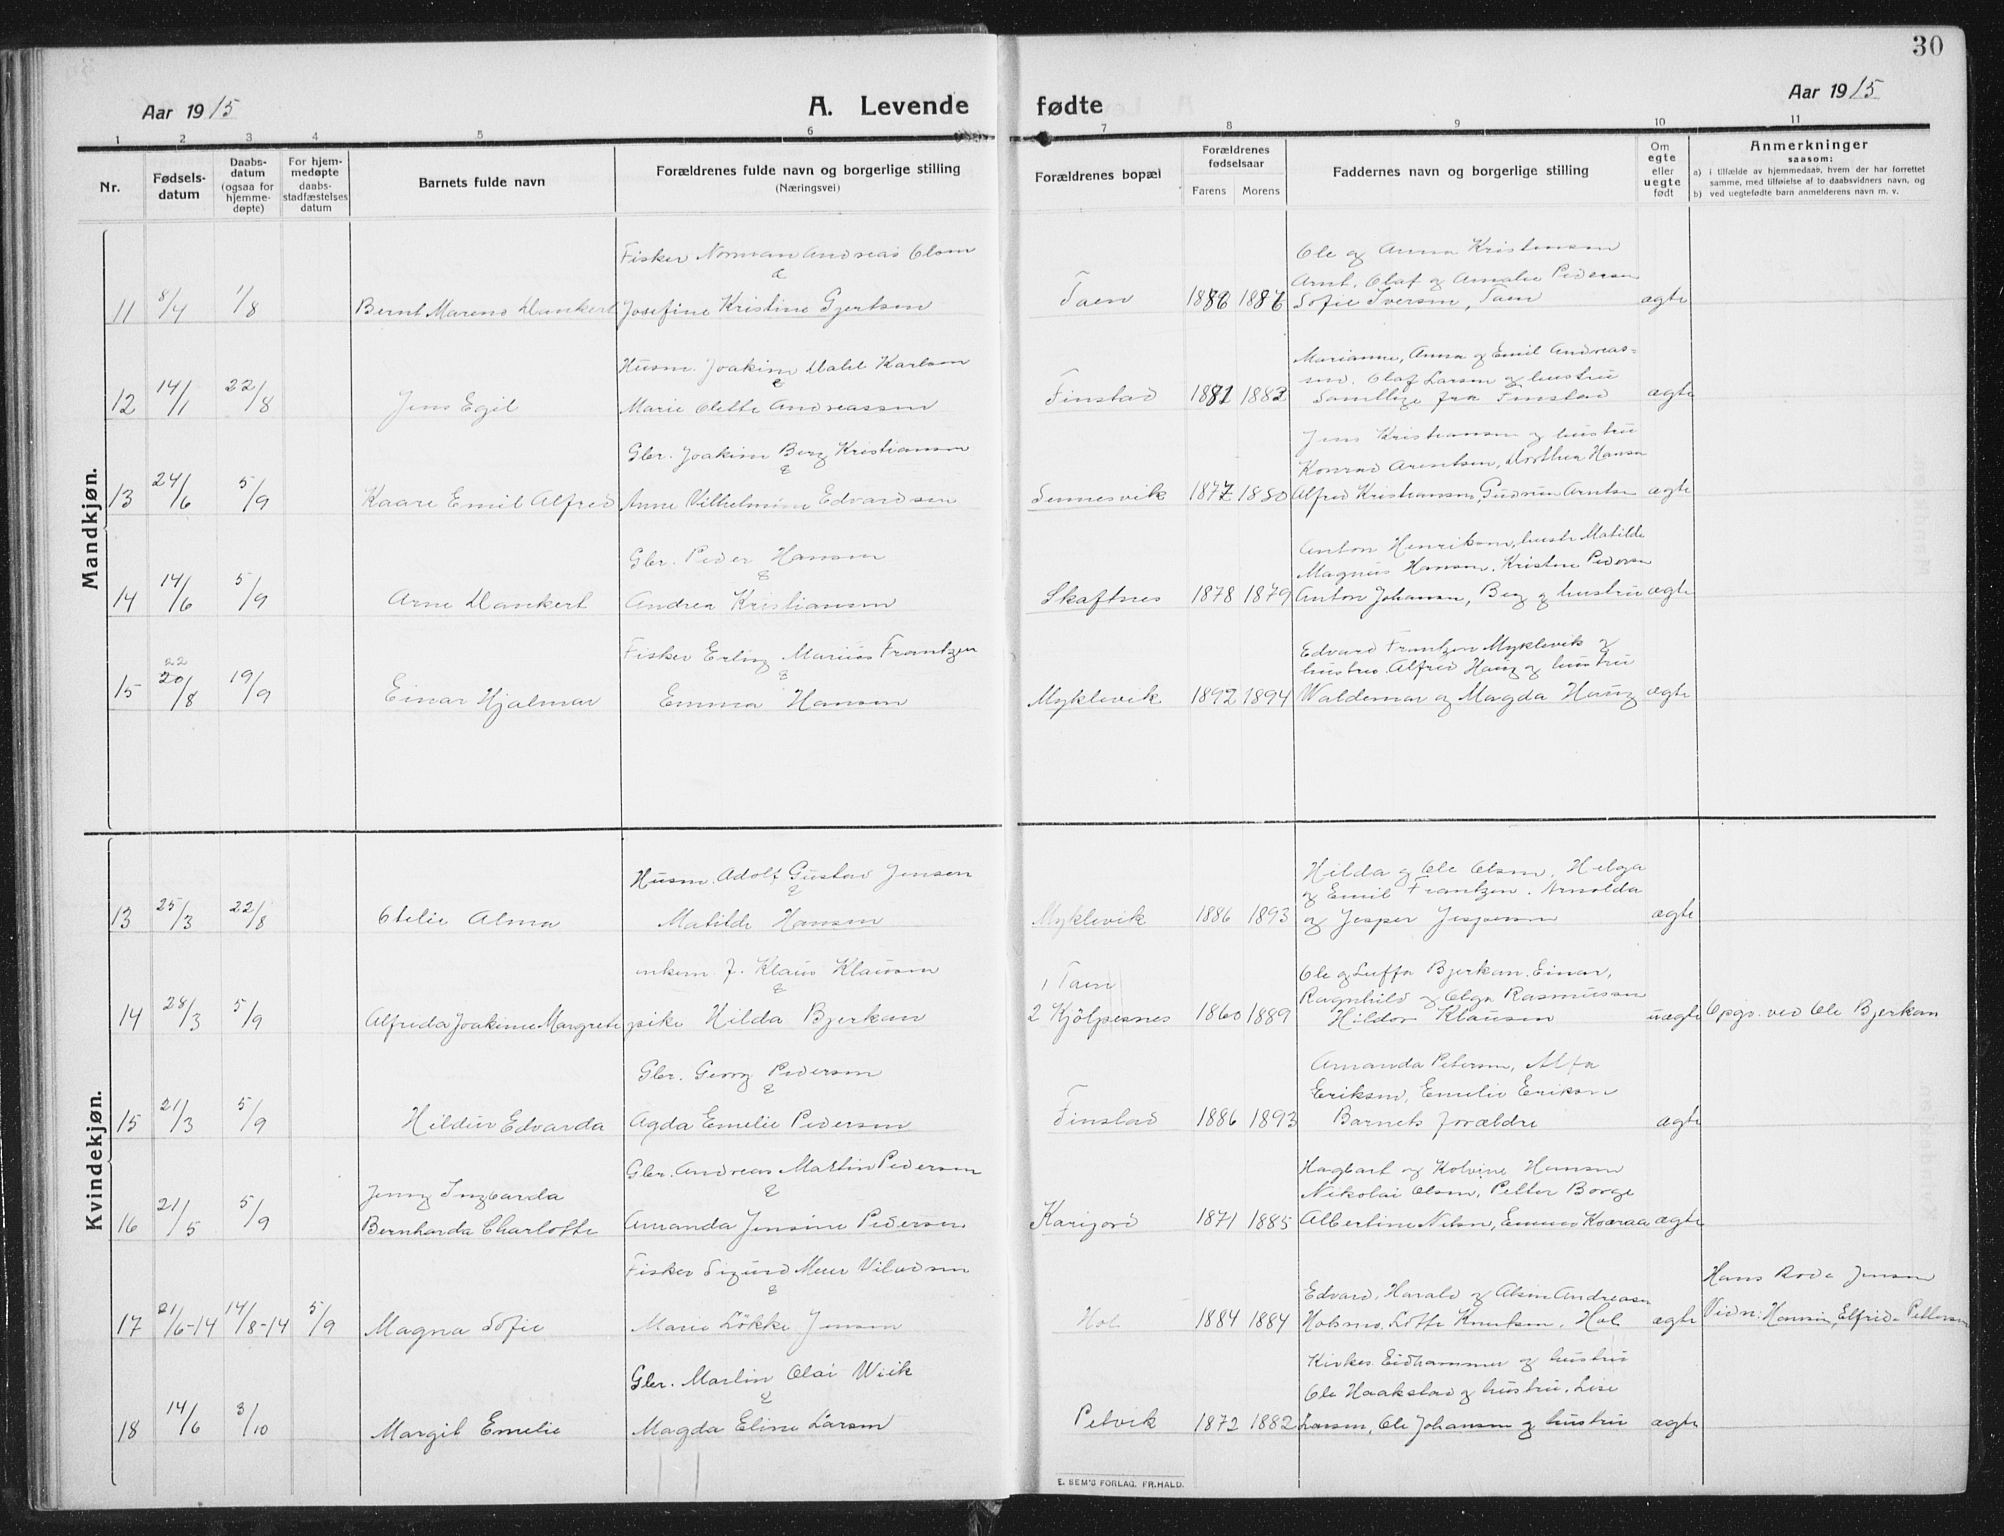 30
Aar 1915
A. Levende fødte
Aar 1915
1 2 3 4 5 6 7 8 9 10 11
Nr.
Fødsels-
datum
Daabs-
datum
(ogsaa for
hjemme-
døpte)
For hjem-
medøpte
daabs-
stadfæstelses
datum
Barnets fulde navn
Forældrenes fulde navn og borgerlige stilling
(Næringsvei)
Forældrenes bopæl
Forældrenes
fødselsaar
Farens Morens
Faddernes navn og borgerlige stilling
Om
egte
eller
uegte
født
Anmerkninger
saasom:
a) i tilfælde av hjemmedaab, hvem der har forrettet
samme, med tilføielse af to daabsvidners navn, og
b) ved uegtefødte barn anmelderens navn m. v.
Mandkjøn.
Fisker Norman Andreas Olsen
&
11 8/4 1/8 Bernt Mareno Dankert Josefine Kristine Gjertsen
Taen 1886 1886
Ole og Anna Kristensen
Arnt, Olaf og Amalie Pedersen
Sofie Iversen, Taen
ægte
Husm. Joakim Dahl Karlsen
&
12 14/1 22/8 Jens Egil Marie Olette Andreassen
Finstad 1881 1883
Marianne, Anna og Emil Andreas-
sen. Olaf Larsen og hustru
Samtlige fra Finstad
ægte
Gbr. Joakim Berg Kristiansen
&
13 24/6 5/9 Kaare Emil Alfred Anne Vilhelmine Edvardsen
Sennesvik 1877 1880
Jens Kristiansen og hustru
Konrad Arentsen, Dorthea Hansen
Alfred Kristiansen, Gudrun Arntsen
ægte
Gbr. Peder Hansen
&
14 14/6 5/9 Arne Dankert Andrea Kristiansen
Skaftnes 1878 1879
Anton Henriksen, hustr Matilde
Magnus Hansen, Kristine Pedersen
Anton Johansen, Berg og hustru
ægte
Fisker Erling Marius Frantzen
&
15 22 20/8 19/9 Einar Hjalmar Emma Hansen
Myklevik 1892 1894
Edvard Frantzen Myklevik og
hustru. Alfred Haug og hustru
Waldemar og Magda Haug
ægte
Kvindekjøn.
Husm. Adolf Gustav Jensen
&
13 25/3 22/8 Otelie Alma Matilde Hansen
Myklevik 1886 1893
Hilda og Ole Olsen, Helga
og Emil Frantzen. Arnolda
og Jesper Jespersen
ægte
enkem. f. Klaus Klausen
&
14 28/3 5/9 Alfreda Joakime Margrete pike Hilda Bjerkan
1 Taen
2 Kjölpesnes 1860 1889
Ole og Luffa Bjerkan. Einar,
Ragnhild og Olga Rasmussen
Hildor Klausen
uægte Opgs. ved Ole Bjerkan
Gbr. Georg Pedersen
&
15 21/3 5/9 Hildur Edvarda Agda Emelie Pedersen
Finstad 1886 1893
Amanda Petersen, Alfa
Eriksen, Emelie Eriksen
Barnets forældre
ægte
Gbr. Andreas Martin Pedersen
&
16 21/5 5/9 Jenny Ingvarda
Bernharda Charlotte Amanda Jensine Pedersen
Karijord 1871 1885
Hagbart og Kolvine Hansen
Nikolai Olsen, Petter Borge
Albertine Nilsen, Emma Kvaraa
ægte
Fisker Sigurd Meier Vilardsen
&
17 21/6-14 14/8-14 5/9 Magna Sofie Marie Løkke Jensen
Hol 1884 1884
Edvard, Harald og Alvine Andreasen
Holsmo, Lotte Knutsen, Hol
ægte
Hans Roda Jensen
Vidn: Hansine, Elfrida Pettersen
Gbr. Martin Olai Wiik
&
18 14/6 3/10 Margit Emelie Magda Eline Larsen
Petvik 1872 1882
Kirkes. Eidhammer og hustru
Ole Haakstad og hustru, Lise
Larsen, Ole Johansen og hustru
ægte
E. SEM'S FORLAG, FR.HALD.